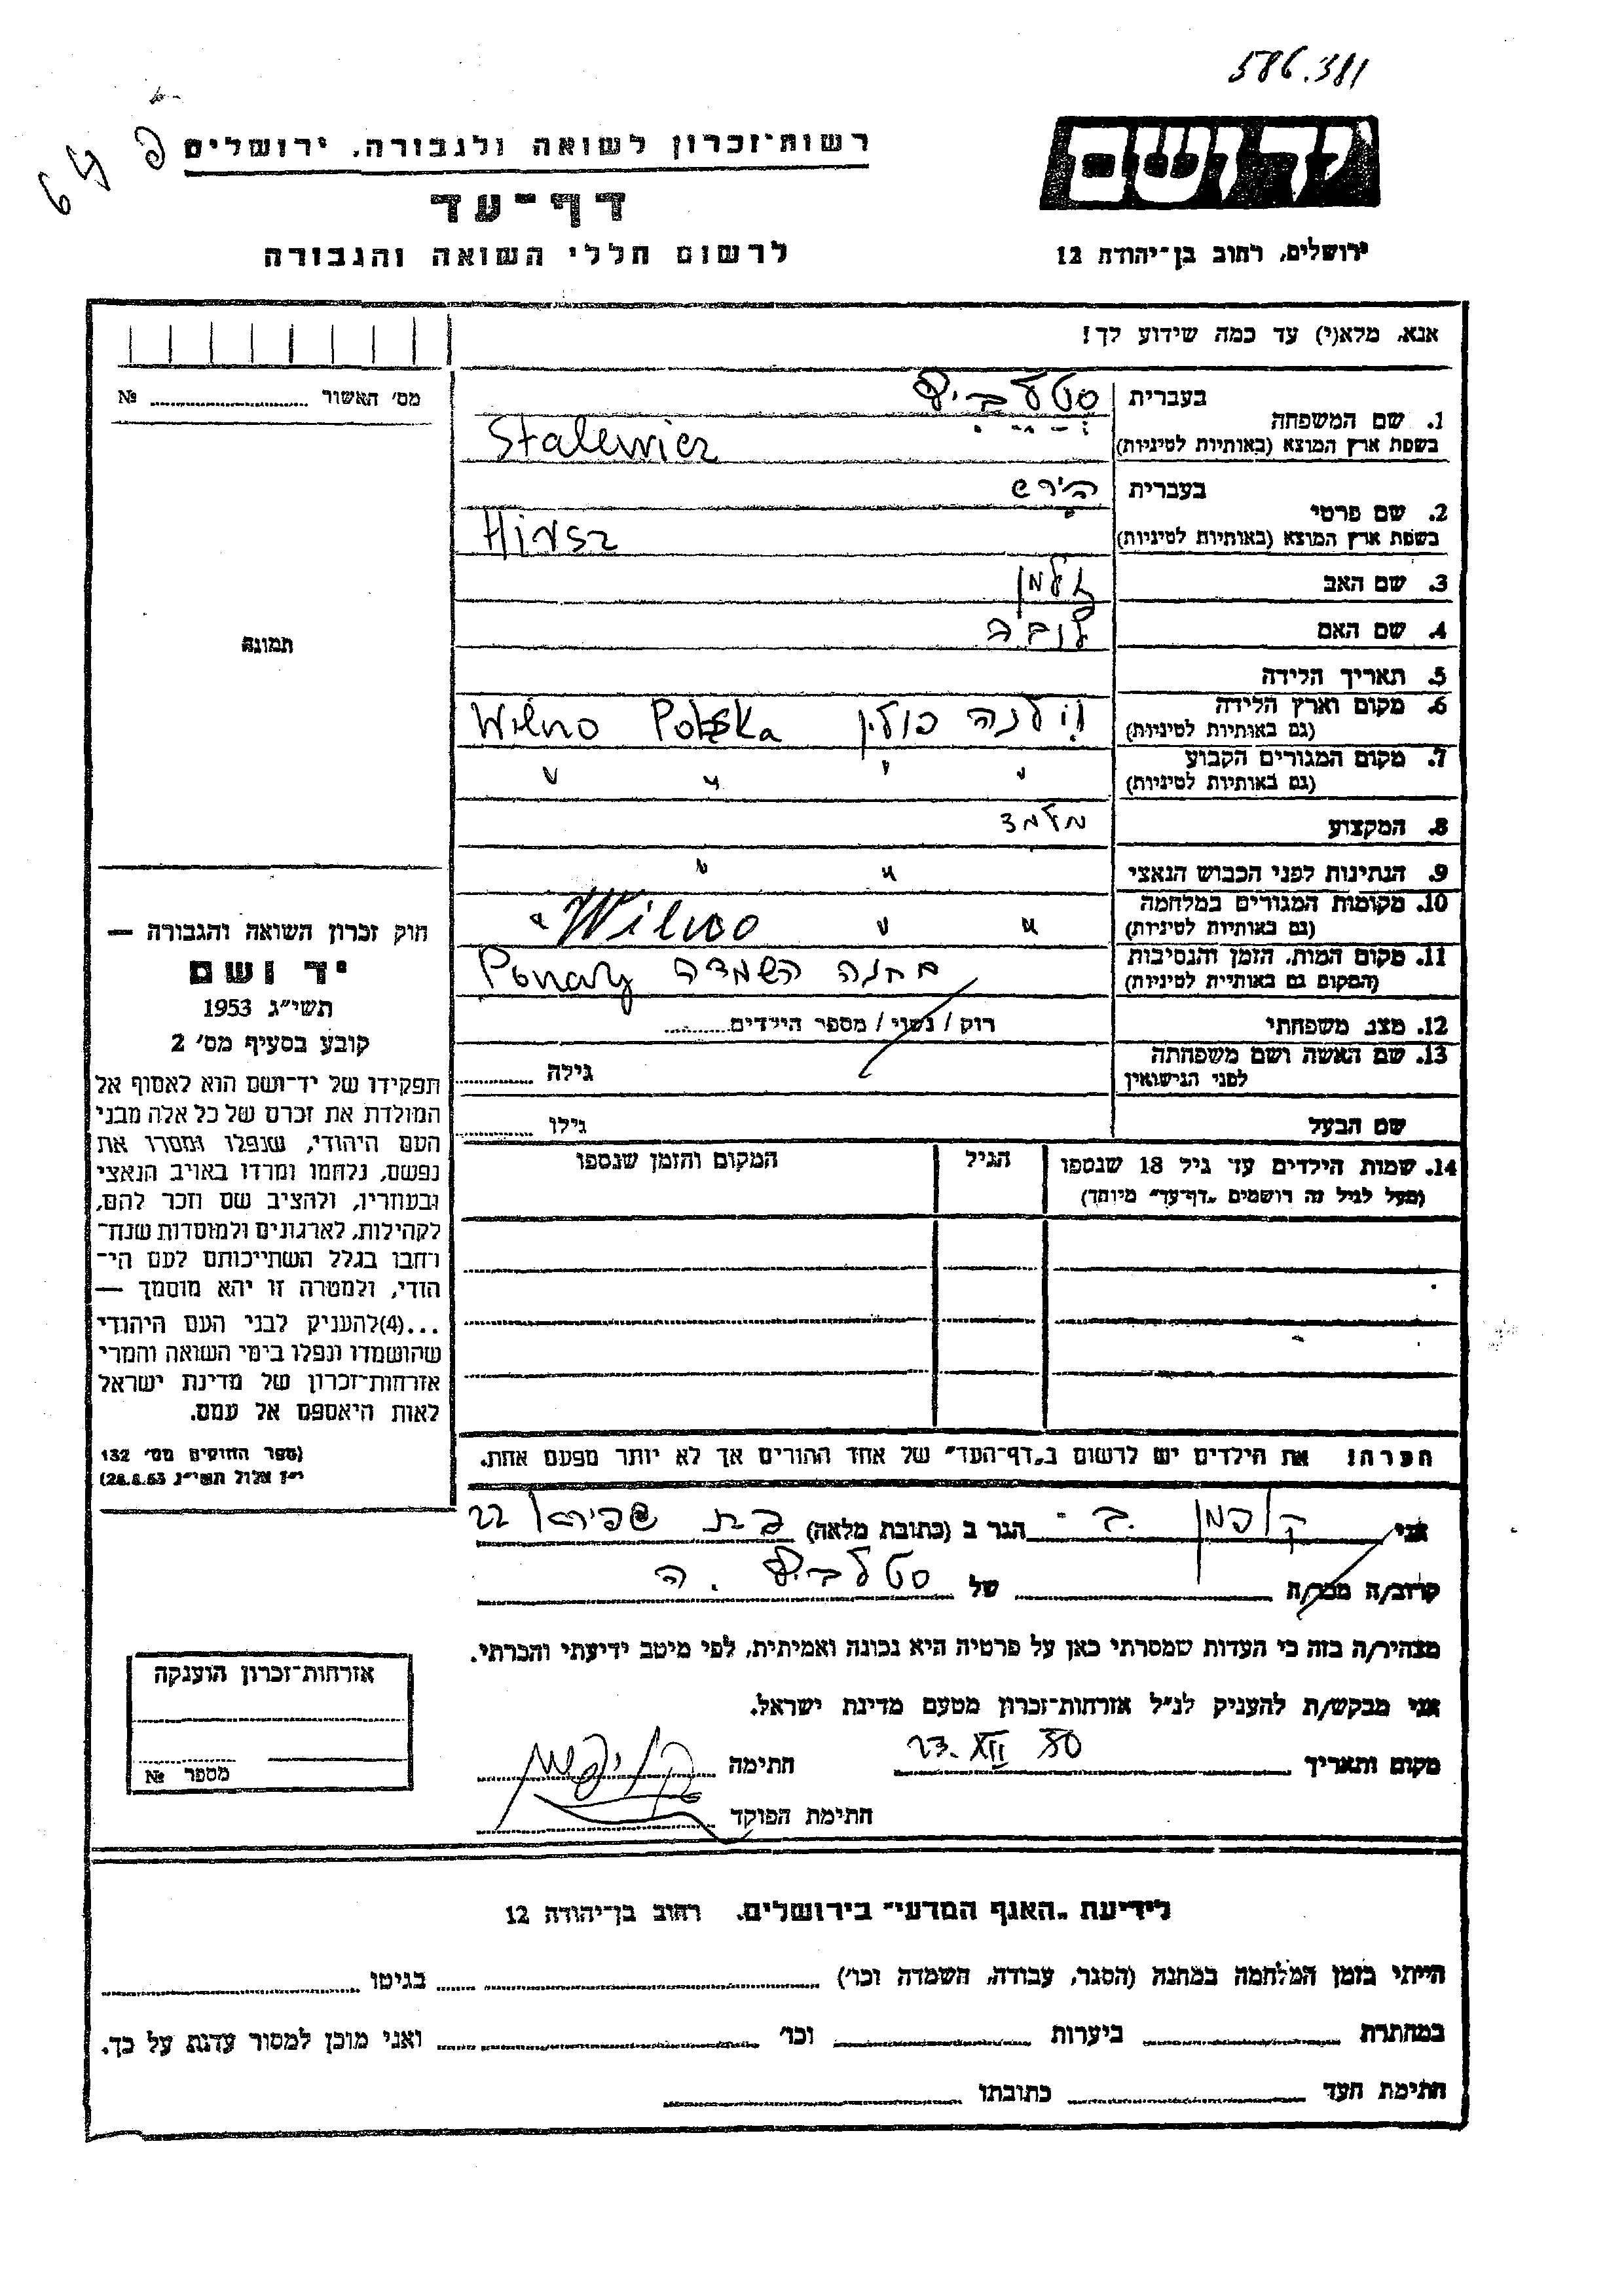 586.381
יד ושם
רשות־זכרון לשואה ולגבורה, ירושלים
דף־עד
לרשום חללי השואה והגבורה
ירושלים, רחוב בן־יהודה 12
אנא, מלא(י) עד כמה שידוע לך!
מס׳ האשור №
1. שם המשפחה
בעברית סטלביץ
בשפת ארץ המוצא (באותיות לטיניות) Stalewicz
2. שם פרטי
בעברית הירש
בשפת ארץ המוצא (באותיות לטיניות) Hirsz
3. שם האב זלמן
4. שם האם לובה
5. תאריך הלידה
6. מקום וארץ הלידה וילנה פולין Wilno Polska
(גם באותיות לטיניות)
7. מקום המגורים הקבוע " " " "
(גם באותיות לטיניות)
8. המקצוע מלמד
9. הנתינות לפני הכבוש הנאצי " "
10. מקומות המגורים במלחמה " " Wilno "
(גם באותיות לטיניות)
11. מקום המות, הזמן והנסיבות מחנה השמדה Ponary
(המקום גם באותיות לטיניות)
12. מצב משפחתי רוק / נשוי / מספר הילדים
13. שם האשה ושם משפחתה גילה
לפני הנישואין
שם הבעל גילו
14. שמות הילדים עד גיל 18 שנספו הגיל המקום והזמן שנספו
(מעל לגיל זה רושמים „דף־עד״ מיוחד)
תמונה
חוק זכרון השואה והגבורה —
יד ושם
תשי״ג 1953
קובע בסעיף מס׳ 2
תפקידו של יד־ושם הוא לאסוף אל
המולדת את זכרם של כל אלה מבני
העם היהודי, שנפלו ומסרו את
נפשם, נלחמו ומרדו באויב הנאצי
ובעוזריו, ולהציב שם וזכר להם,
לקהילות, לארגונים ולמוסדות שנח־
רחבו בגלל השתייכותם לעם הי־
הודי, ולמטרה זו יהא מוסמך —
...(4)להעניק לבני העם היהודי
שהושמדו ונפלו בימי השואה והמרי
אזרחות־זכרון של מדינת ישראל
לאות היאספם אל עמם.
(ספר החוקים מס׳ 132
י״ז אלול תשי״ג 28.8.53)
הערה! את הילדים יש לרשום ב„דף־העד״ של אחד ההורים אך לא יותר מפעם אחת.
אני ב. הגר ב (כתובת מלאה) 22
קרוב/ה מכר/ה של סטלביץ ה.
מצהיר/ה בזה כי העדות שמסרתי כאן על פרטיה היא נכונה ואמיתית, לפי מיטב ידיעתי והכרתי.
אני מבקש/ת להעניק לנ״ל אזרחות־זכרון מטעם מדינת ישראל.
מקום ותאריך 23. XII 80 חתימה
חתימת הפוקד
אזרחות־זכרון הוענקה
מספר №
לידיעת „האגף המדעי״ בירושלים, רחוב בן־יהודה 12
הייתי בזמן המלחמה במחנה (הסגר, עבודה, השמדה וכו׳) בגיטו
במחתרת ביערות וכו׳ ואני מוכן למסור עדות על כך.
חתימת העד כתובתו